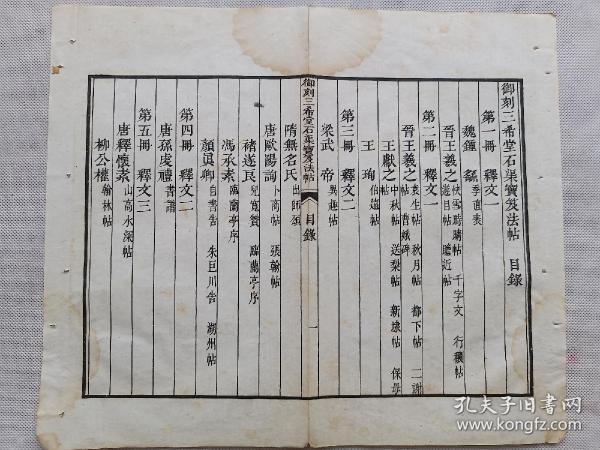 御刻三希堂石渠寶笈法帖 目錄
第一冊 釋文一
魏鍾繇 季直表
晉王羲之 快雪時晴帖 千字文 行穰帖
遊目帖 瞻近帖
第二冊 釋文一
晉王羲之 袁生帖 秋月帖 都下帖 二謝
帖 曹娥碑
王獻之 中秋帖 送梨帖 新婦帖 保母
帖
王珣 伯遠帖
第三冊 釋文二
梁武帝 異趣帖
御刻三希堂石渠寶笈法帖 目錄 一
隋無名氏 出師頌
唐歐陽詢 卜商帖 張翰帖
褚遂良 兒寬贊 臨蘭亭序
馮承素 臨蘭亭序
顏眞卿 自書告 朱巨川告 湖州帖
第四冊 釋文二
唐孫虔禮 書譜
第五冊 釋文三
唐釋懷素 山高水深帖
柳公權 翰林帖
孔夫子旧书网
www.kongfz.com